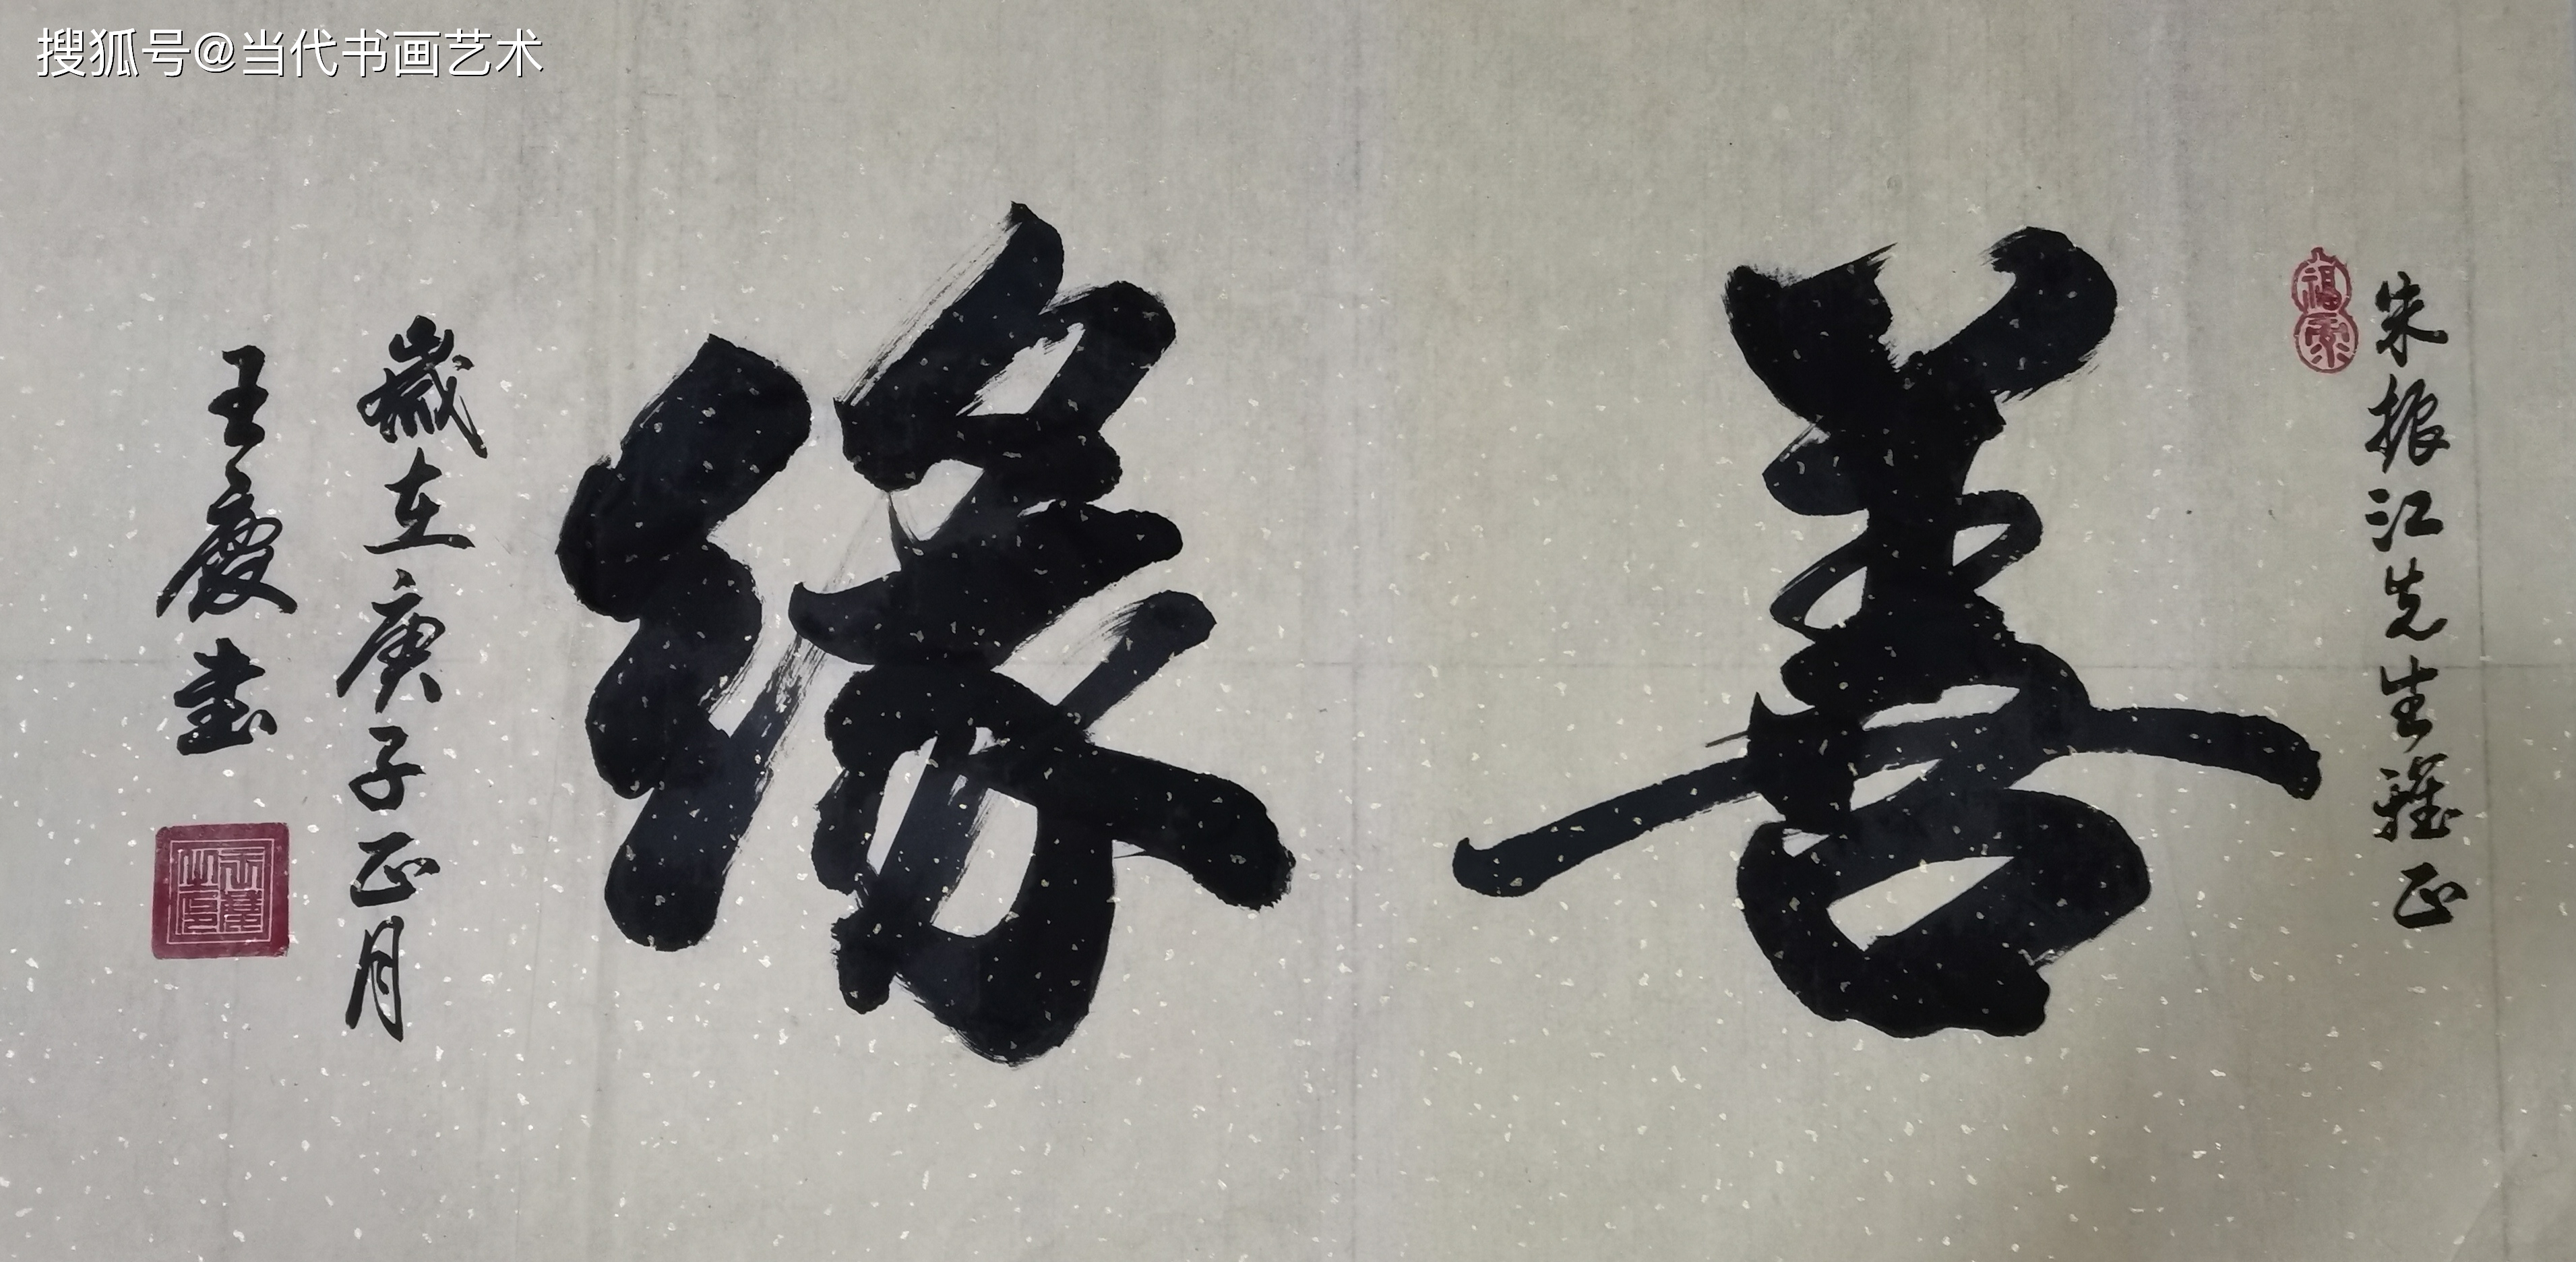 搜狐号@当代书画艺术
朱振江先生雅正
福
善缘
歲在庚子正月
王慶書